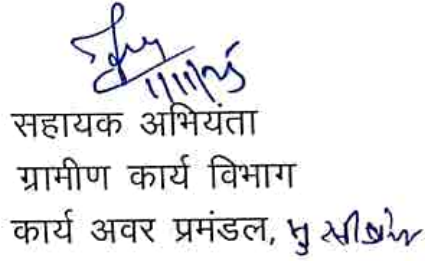 1/11/25
सहायक अभियंता
ग्रामीण कार्य विभाग
कार्य अवर प्रमंडल,